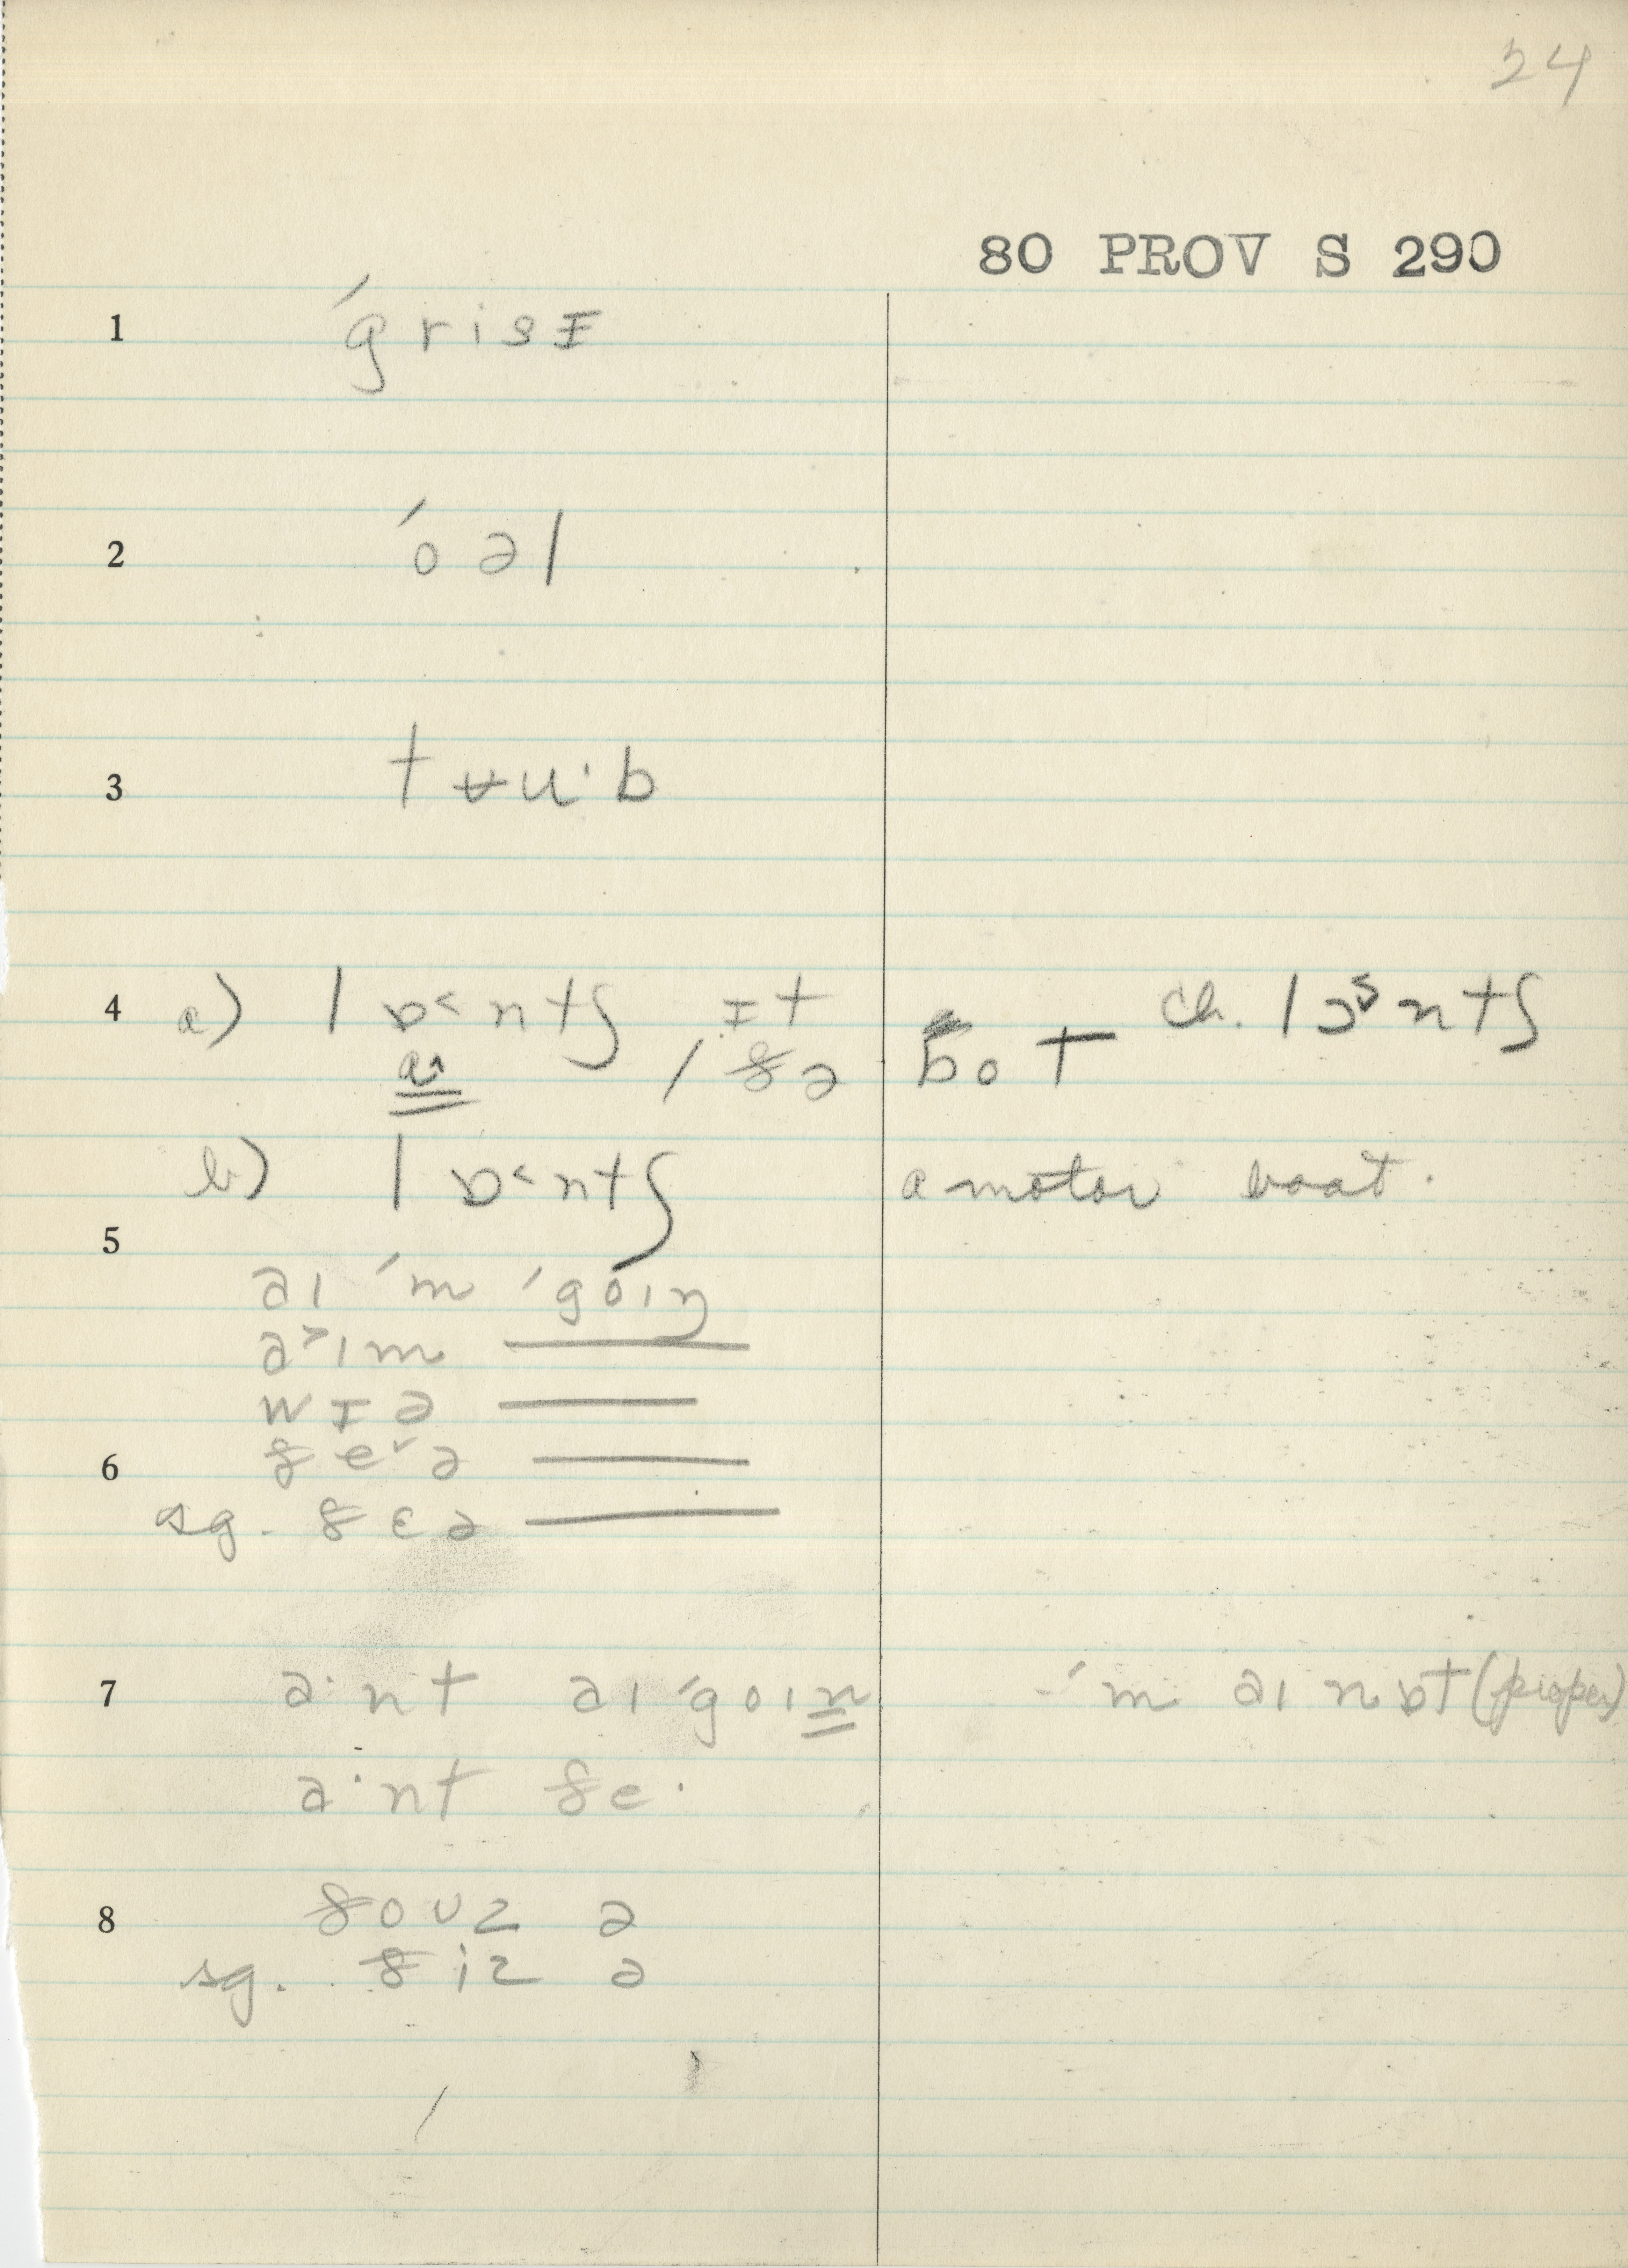 24
80 PROV S 290
1 ˈgrisɪ
2 ˈoəl
3 tʉu·b
4 a) lɒ˂ntʃ, ɪt / ðə bot ch. lɔ˃ntʃ
ɑ˄
b) lɒ˂ntʃ a motor boat.
5
aɪ ˈm ˈgoɪŋ
a˃ɪm ———
wɪə ———
6 ðe˅ə ———
sg. ðɛə ———
7 a·nt aɪ ˈgoɪn ˈm aɪ nɒt (proper)
a·nt ðe·
8 ðoʊz ə
sg. ðiz ə